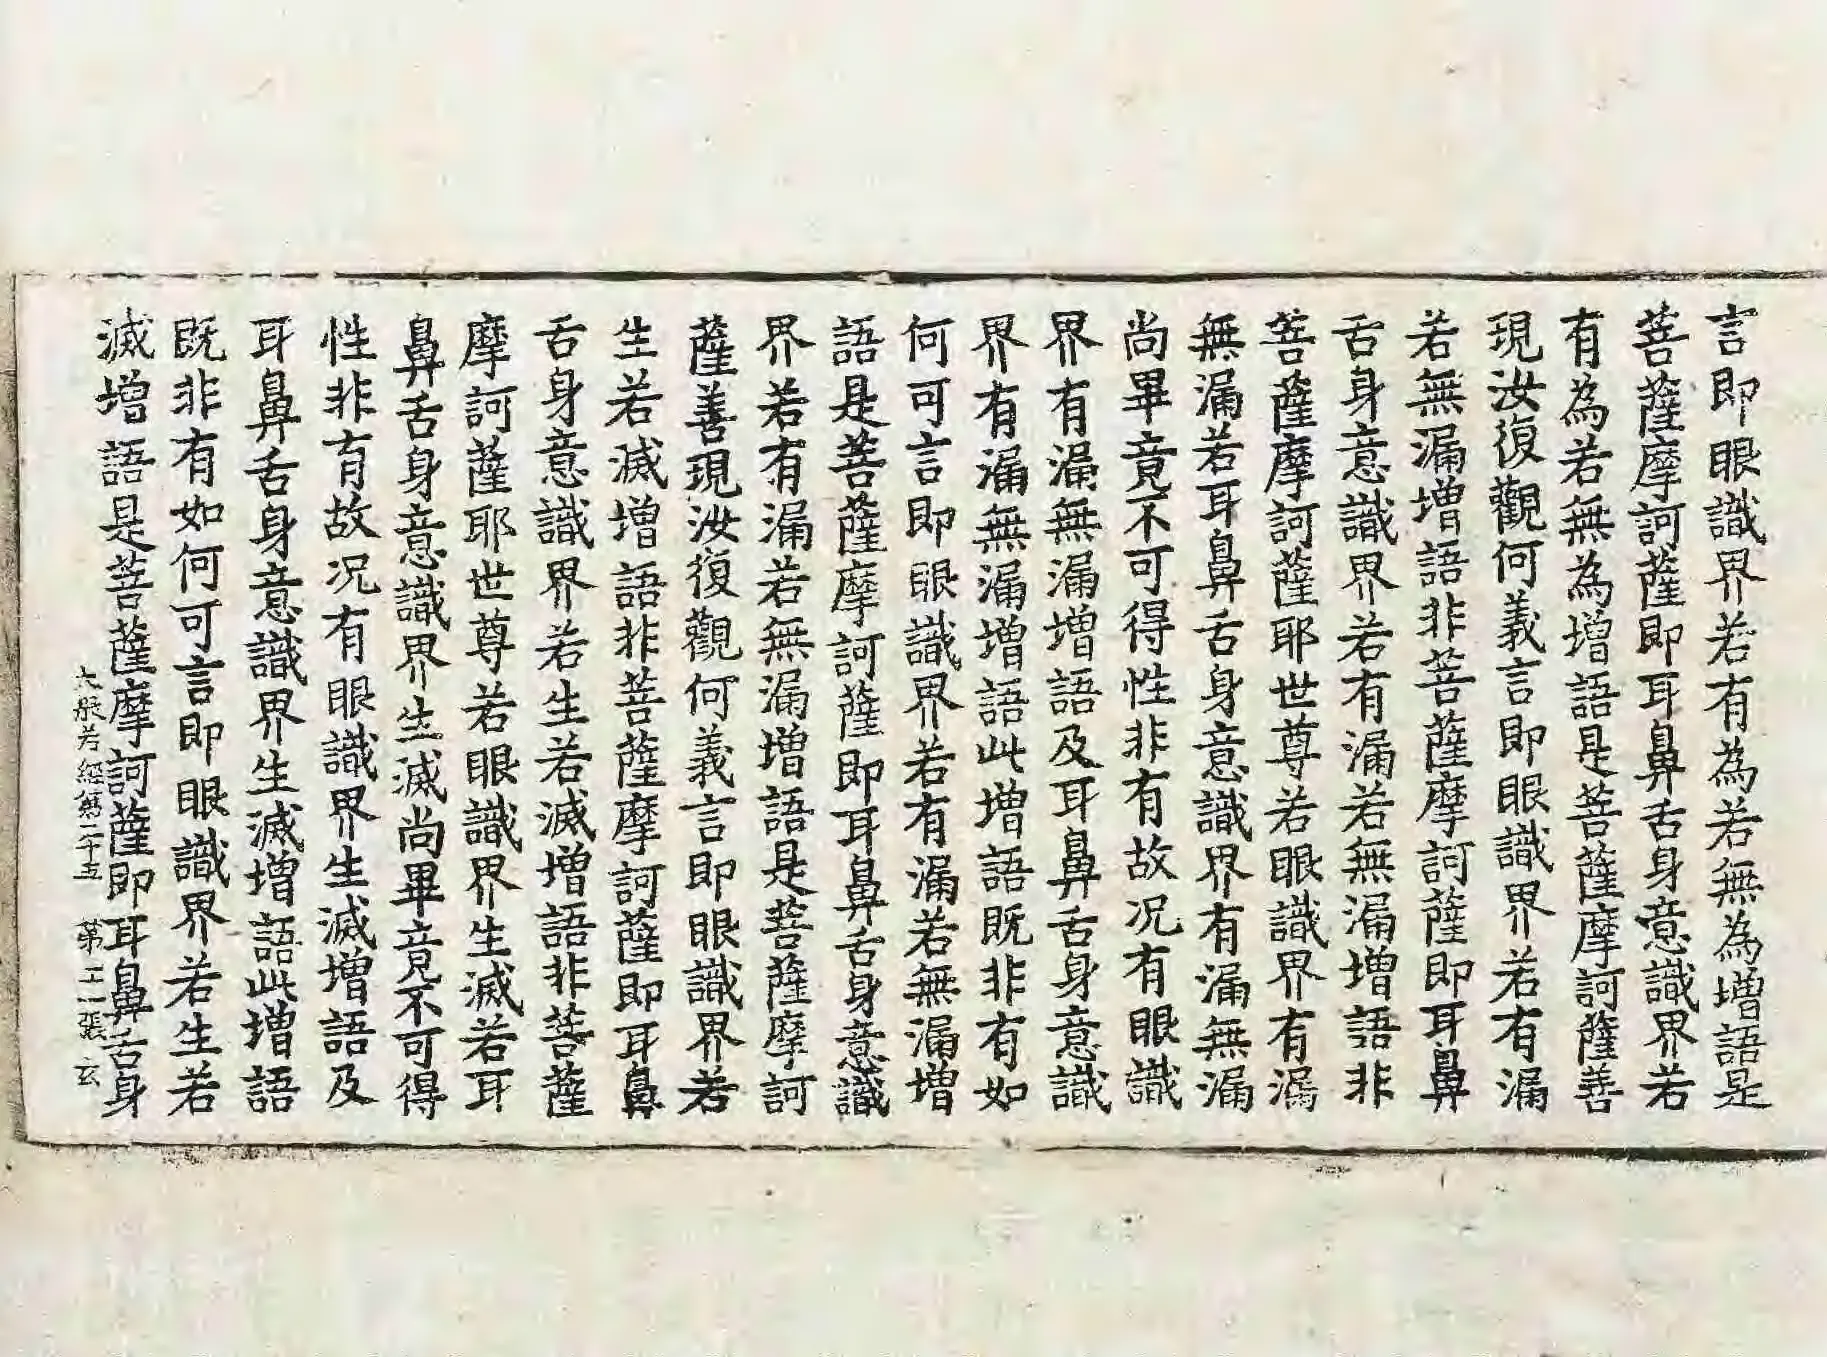 言即眼識界若有為若無為增語是
菩薩摩訶薩即耳鼻舌身意識界若
有為若無為增語是菩薩摩訶薩善
現汝復觀何義言即眼識界若有漏
若無漏增語非菩薩摩訶薩即耳鼻
舌身意識界若有漏若無漏增語非
菩薩摩訶薩耶世尊若眼識界有漏
無漏若耳鼻舌身意識界有漏無漏
尚畢竟不可得性非有故况有眼識
界有漏無漏增語及耳鼻舌身意識
界有漏無漏增語此增語既非有如
何可言即眼識界若有漏若無漏增
語是菩薩摩訶薩即耳鼻舌身意識
界若有漏若無漏增語是菩薩摩訶
薩善現汝復觀何義言即眼識界若
生若滅增語非菩薩摩訶薩即耳鼻
舌身意識界若生若滅增語非菩薩
摩訶薩耶世尊若眼識界生滅若耳
鼻舌身意識界生滅尚畢竟不可得
性非有故况有眼識界生滅增語及
耳鼻舌身意識界生滅增語此增語
既非有如何可言即眼識界若生若
滅增語是菩薩摩訶薩即耳鼻舌身
大般若經第二十五 第二張 玄